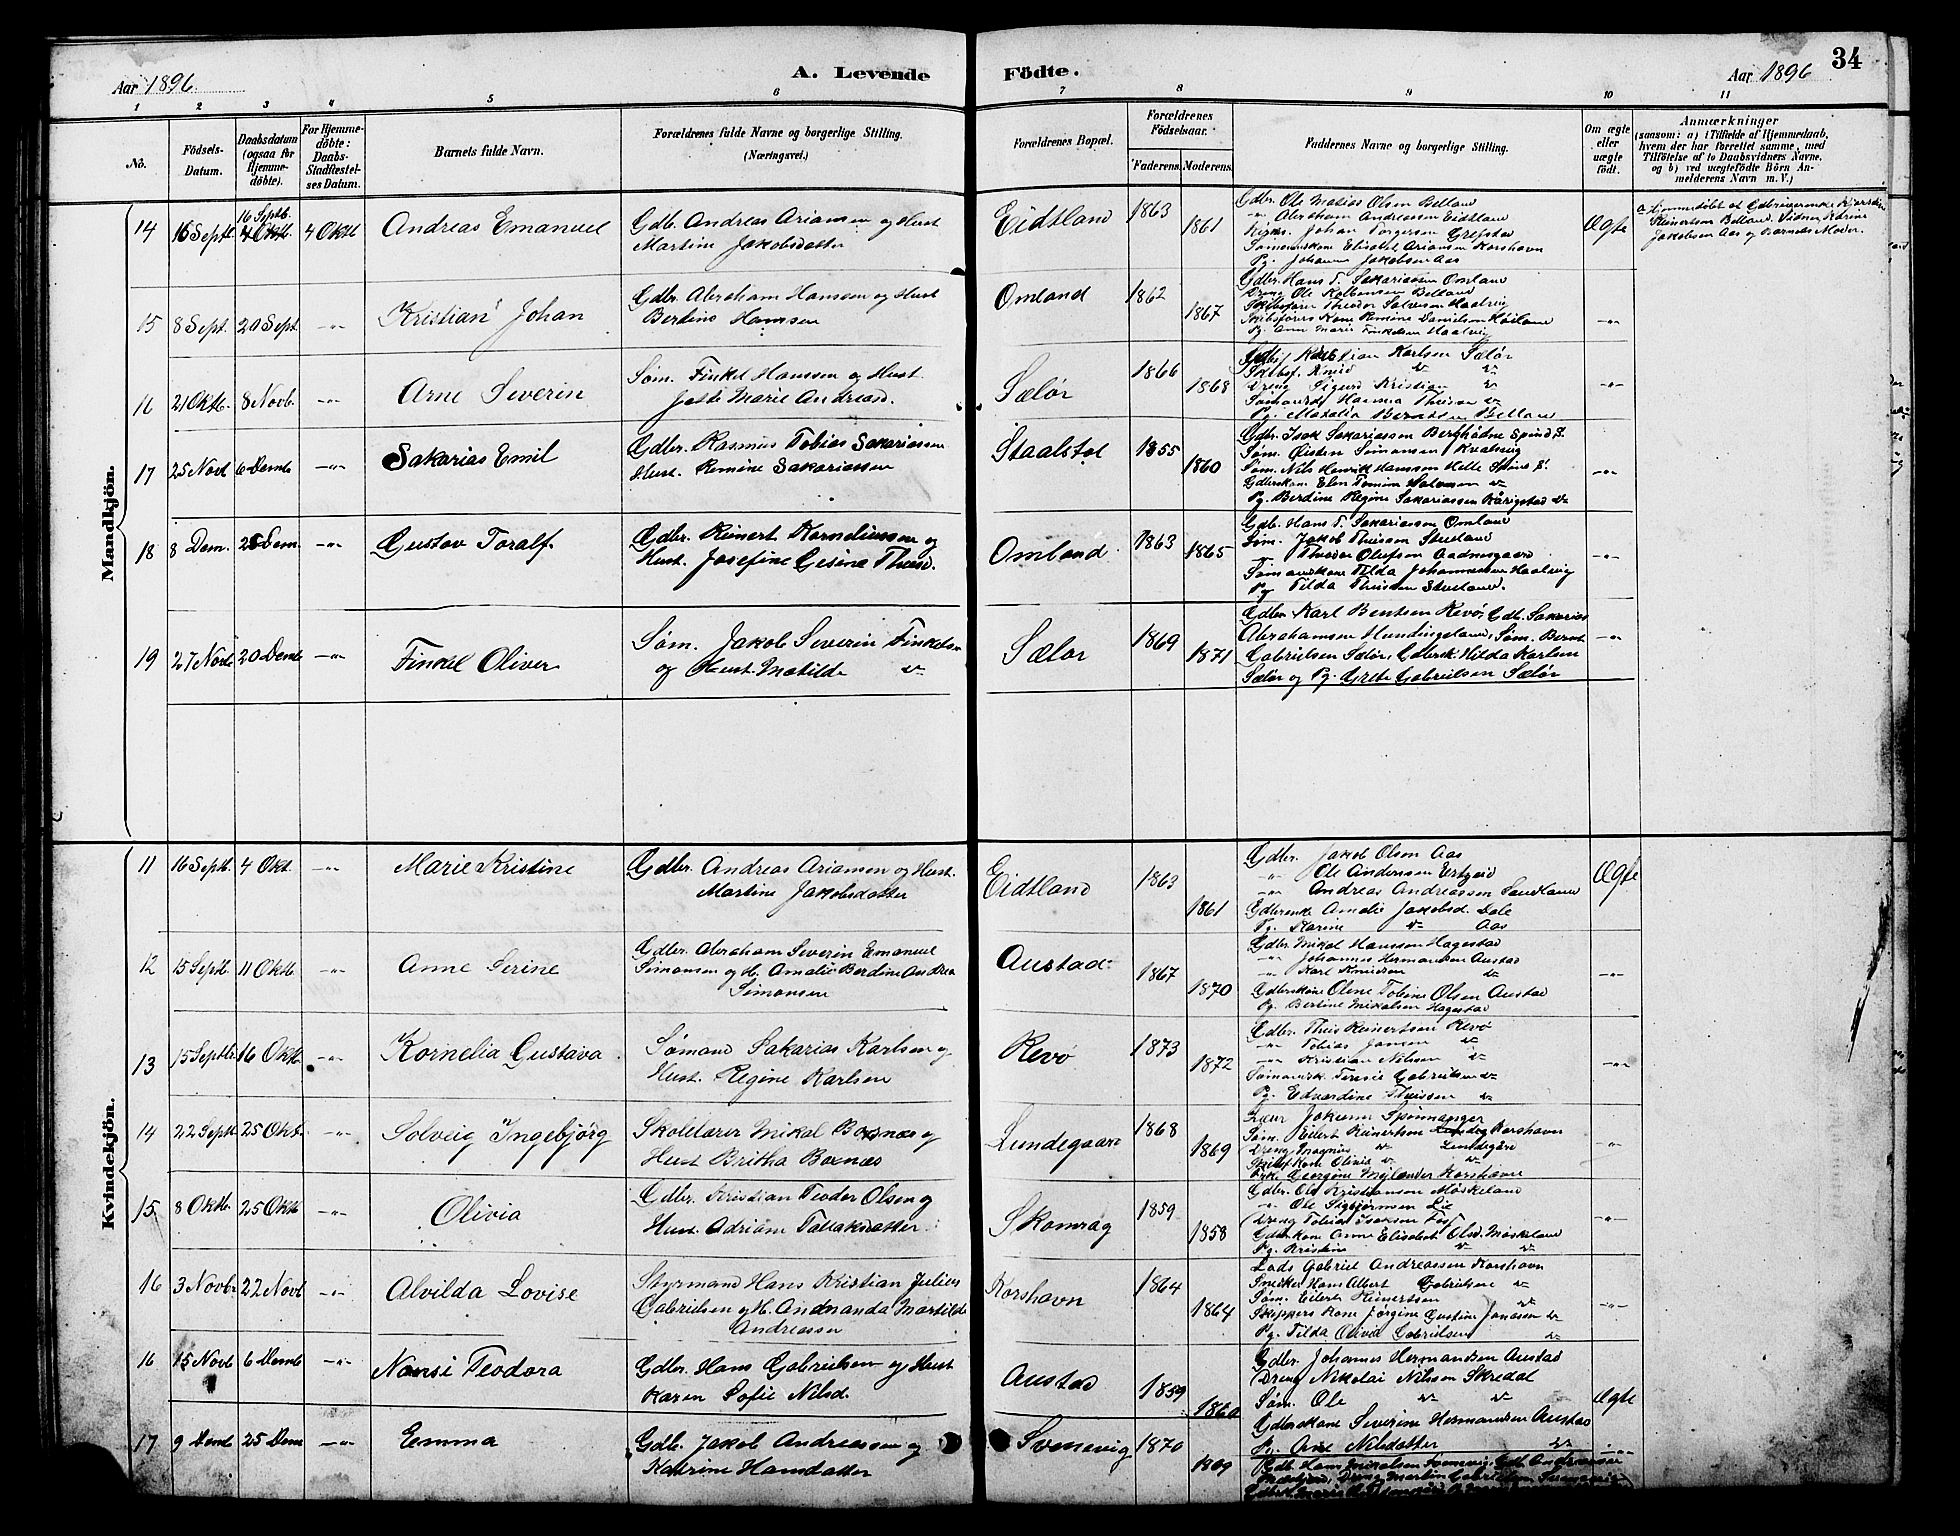 34
Aar 1896. A. Levende Födte. Aar 1896
1 2 3 4 5 6 7 8 9 10 11
No. Födsels-Datum. Daabsdatum (ogsaa for Hjemme-döbte). For Hjemme-döbte: Daabs-Stadfæstel-ses Datum. Barnets fulde Navn. Forældrenes fulde Navne og borgerlige Stilling. (Næringsvei.) Forældrenes Bopæl. Forældrenes Födselsaar. Faderens. Moderens. Faddernes Navne og borgerlige Stilling. Om ægte eller uægte födt. Anmærkninger (saasom: a) i Tilfælde af Hjemmedaab, hvem der har forrettet samme, med Tilföielse af to Daabsvidners Navne, og b) ved uægtefödte Börn An-melderens Navn m. V.)
Mandkjön.
14 16 Septb. 16 Septb. 4 Oktb. 4 Oktb Andreas Emanuel Gdb. Andreas Ariansen og Hust
Martine Jakobsdatter Eidtland 1863 1861 Ægte
Gdbr. Ole Matias Olsen Belland
" Abraham Andreassen Eidtland
Johan Torgersen Grefstad
Sømandskone Elisabet Ariansen Korshavn
Pg. Johanne Jakobsen Aas
Reinertsen Belland. Vidner
Jakobsen Aas og Barnets Moder.
15 8 Sept. 20 Sept. -"- Kristian Johan Gdbr. Abraham Hansen og Hust
Bertine Hanssen Omland 1862 1867 -"-
Gdbr. Hans T. Sakariassen Omland
Dreng Ole Kolbensen Belland
Skibsfører Theodor Salvesen Haalvig
Skibsførers Kone Remine Danielsen Høiland
Pg. Ann Marie Finkelsen Haalvig
16 21 Oktb. 8 Novb. -"- Arne Severin Søm. Finkel Hanssen og Hust.
Marie Andreasd. Sælør 1866 1868 -"-
Kristian Karlsen Sælør
Skibsf. Knud
Dreng Sigurd Kristian
Hanna
Pg. Matalia Berntsen Belland
17 25 Novb 6 Demb -"- Sakarias Emil Gdbr. Rasmus Tobias Sakariassen
Hust. Remine Sakariassen Staalstøl 1855 1860 -"-
Gdbr. Isak Sakariassen Spind
Søm. Øisten Simonsen Kvalsvig
Søm. Nils Henrik Hanssen Helle Spind
Gdbrskone Elen Tomine
Pg. Berdine Regine Sakariassen
18 8 Dem. 26 Dem. -"- Gustav Toralf Gdbr. Reinert Korneliussen og
Hust. Josefine Gesine Thuesd. Omland 1863 1865 -"-
Gdb. Hans T. Sakariassen Omland
Søm. Jakob Thuesen Stueland
Theodor Olufsen Aadnegaard
Sømandskone Tilda Johannessen Haalvig
Pg Tilda Thuesen Stueland.
19 27 Novb 20 Demb -"- Finkel Oliver Søm. Jakob Severin Finkelsen
og Hust. Matilde Sælør 1869 1871 -"-
Gdbr Karl Bentsen Revø, Gdb. Sakarias
Abrahamsen Hundingsland, Søm. Bernt
Gabrielsen Sælør, Gdbrsk. Hilda Karlsen
Sælør og Pg. Grete Gabrielsen Sælør
Kvindekjön.
11 16 Septb. 4 Okt. -"- Marie Kristine Gdbr. Andreas Ariansen og Hust.
Martine Jakobsdatter Eidtland 1863 1861 Ægte
Gdbr. Jakob Olsen Aas
-"- Ole Anderssen
-"- Andreas Andreassen Sandland
Amalie Jakobsd. Dale
Pg. Karine Aas
12 15 Septb. 11 Oktb -"- Anne Serine Gdbr. Abraham Severin Emanuel
Simonsen og H. Amalie Berdine Andrea
Simonsen Austad 1867 1870 -"-
Gdbr. Mikal Hanssen Hagestad
-"- Johannes Hermansen Austad
-"- Karl Knudsen
Gdbrskone Oline Tobine Olsen Austad
Pg. Bertine Mikalsen Hagestad
13 15 Septbr 16 Oktb. -"- Kornelia Gustava Sømand Sakarias Karlsen og
Hust. Regine Karlsen Revø 1873 1872 -"-
Gdbr. Thuis Reinertsen Revø
-"- Tobias Jansen
-"- Kristian Nilsen
Sømandsk. Gabrielsen
Pg. Edvardine Thuissen
14 22 Septb 25 Oktb. -"- Solveig Ingebjørg Skolelærer Mikal Boxnæs og
Hust Britha Boxnæs Lundegaard 1868 1869 -"-
Jokum Spinnanger
Søm. Eilert Reinertsen Korshavn
Dreng Magnus Lundegård
Kone Olivia
Georgine Korshavn
15 8 Oktb. 25 Oktb -"- Olivia Gdbr. Kristian Teodor Olsen og
Hust. Adriane Tallaksdatter Skomrag 1859 1858 -"-
Gdbr. Ole Kristiansen Møskeland
-"- Ole Sigbjørnsen Lie
Dreng Tobias
Gdbrskone Anne Elisabet Olsd. Møskeland
Pg. Kristine
16 3 Novbr 22 Novb -"- Alvilda Lovise Styrmand Hans Kristian Julius
Gabrielsen og H. Andnanda Matilde
Andreassen Korshavn 1864 1864 -"-
Lods Gabriel Andreassen Korshavn
Snecker Hans Albert Gabrielsen
Søm. Eilert Reinertsen
Skippers Kone Jørgine Gustine Jonassen
Pg. Tilda Olivia Gabrielsen
16 15 Novb 6 Demb -"- Nansi Teodora Gdbr. Hans Gabrielsen og Hust
Karen Sofie Nilsd. Austad 1859 1860 Ægte
Gdbr. Johannes Hermansen Austad
Dreng Nikolai Nilsson Skredal
Søm. Ole
Gdbrskone Severine Hermansen Austad
Pg. Ane Nilsdatter
17 9 Demb 25 Dem -"- Emma Gdb. Jakob Andreassen og
Katrine Hansdatter Svenevig 1870 1869 -"-
Gdb. Hans Mikalsen Svenevig, Gdb. Andreas
Dreng Martin Gabrielsen Svenevig